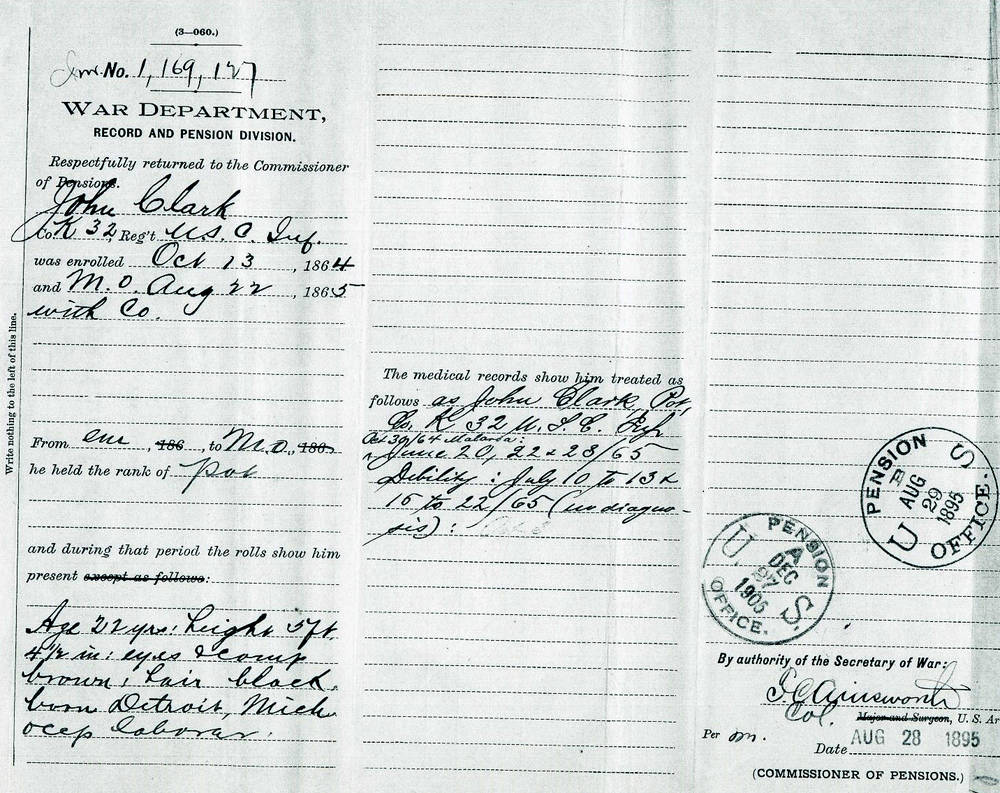 (3—060.)
Inv. No. 1,169,127
WAR DEPARTMENT,
RECORD AND PENSION DIVISION.
Respectfully returned to the Commissioner
of Pensions.
John Clark
Co. K 32, Reg't U.S. C. Inf.
was enrolled Oct 13, 1864
and M. O. Aug 22, 1865
with Co.
From enr, 186 , to M.O., 186
he held the rank of pvt
and during that period the rolls show him
present except as follows:
Age 22 yrs: height 5 ft
4 1/2 in: eyes & comp
brown; hair black,
born Detroit, Mich
ocep laborer.
Write nothing to the left of this line.
The medical records show him treated as
follows as John Clark, Pvt,
Co. K 32 U. S. C. Inf
Oct 30/64 Malaria:
June 20, 22 & 23/65
Debility: July 10 to 13 &
15 to 22/65 (no diagno-
sis):
U S PENSION OFFICE.
AUG
29
1895
U. S. PENSION OFFICE.
A
DEC
27
1905
By authority of the Secretary of War:
F C Ainsworth
Col. Major and Surgeon, U. S. Ar
Per m.
Date AUG 28 1895
(COMMISSIONER OF PENSIONS.)